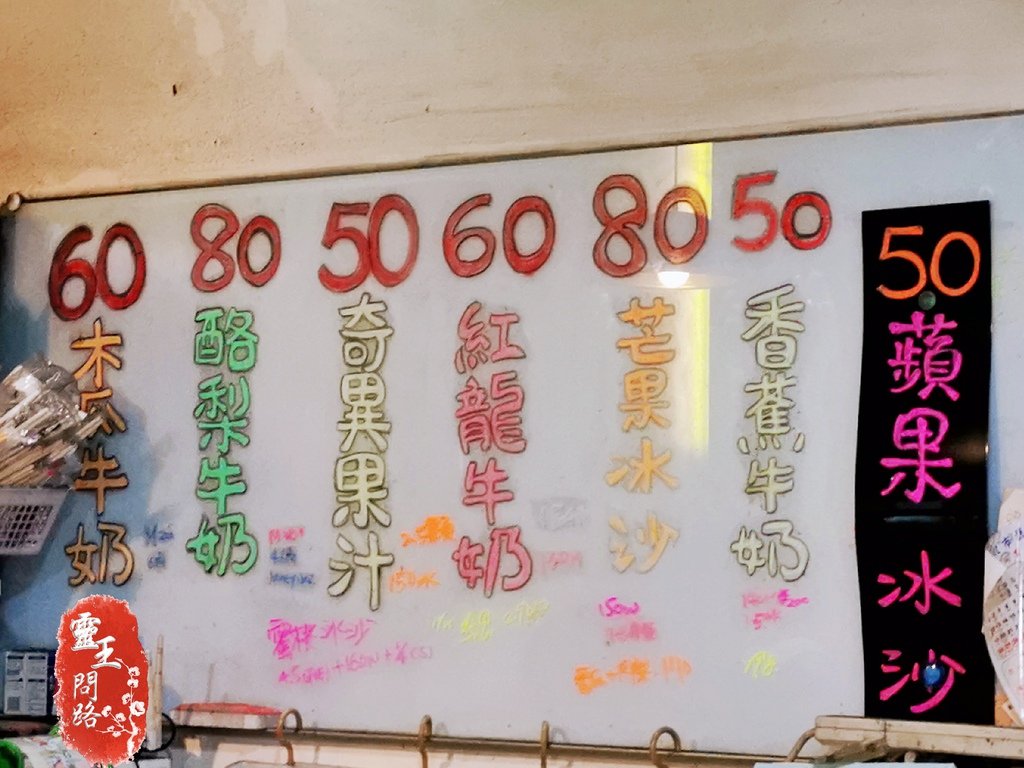 60
木瓜牛奶
80
酪梨牛奶
50
奇異果汁
60
紅龍牛奶
80
芒果冰沙
50
香蕉牛奶
50
蘋果冰沙
靈王問路